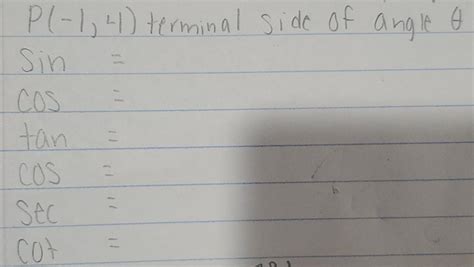 P(-1, 4) terminal side of angle θ
sin =
cos =
tan =
cos =
sec =
cot =